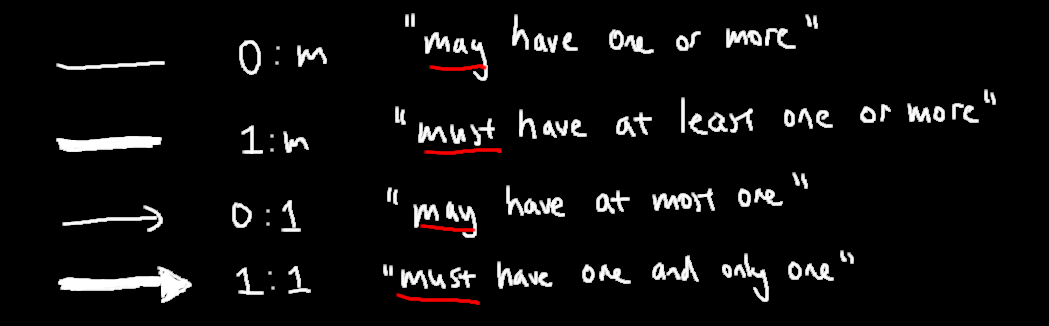 0:m "may have one or more"
1:m "must have at least one or more"
0:1 "may have at most one"
1:1 "must have one and only one"